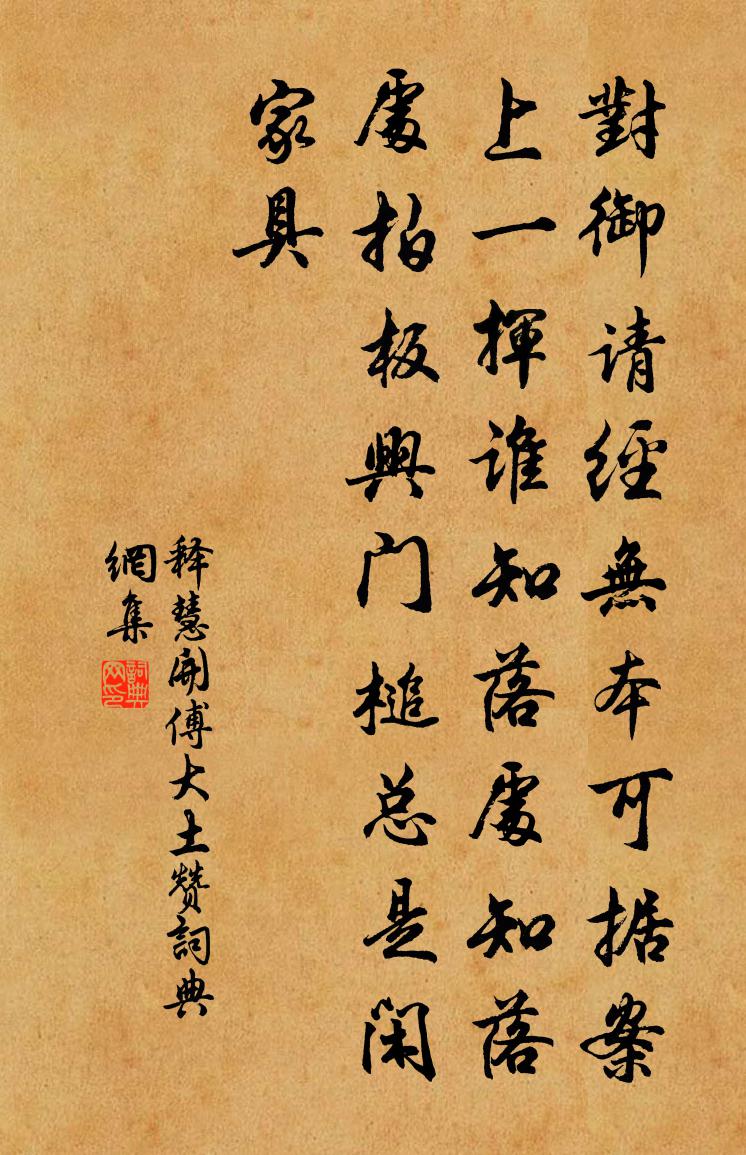 對御请經無本可据案
上一揮谁知落處知落
處拍板興门槌总是闲
家具
释慧開傅大士赞詞典
網集
詞典網印